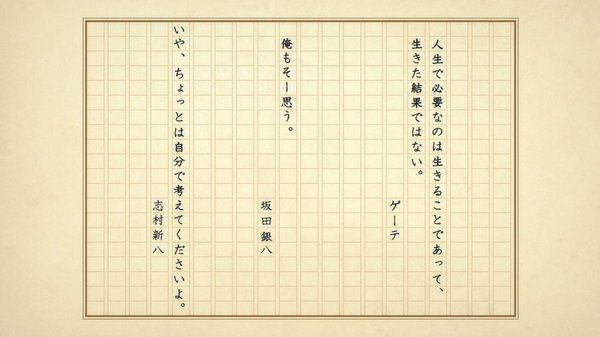 人生で必要なのは生きることであって、
生きた結果ではない。
ゲーテ
俺もそー思う。
坂田銀八
いや、ちょっとは自分で考えてくださいよ。
志村新八